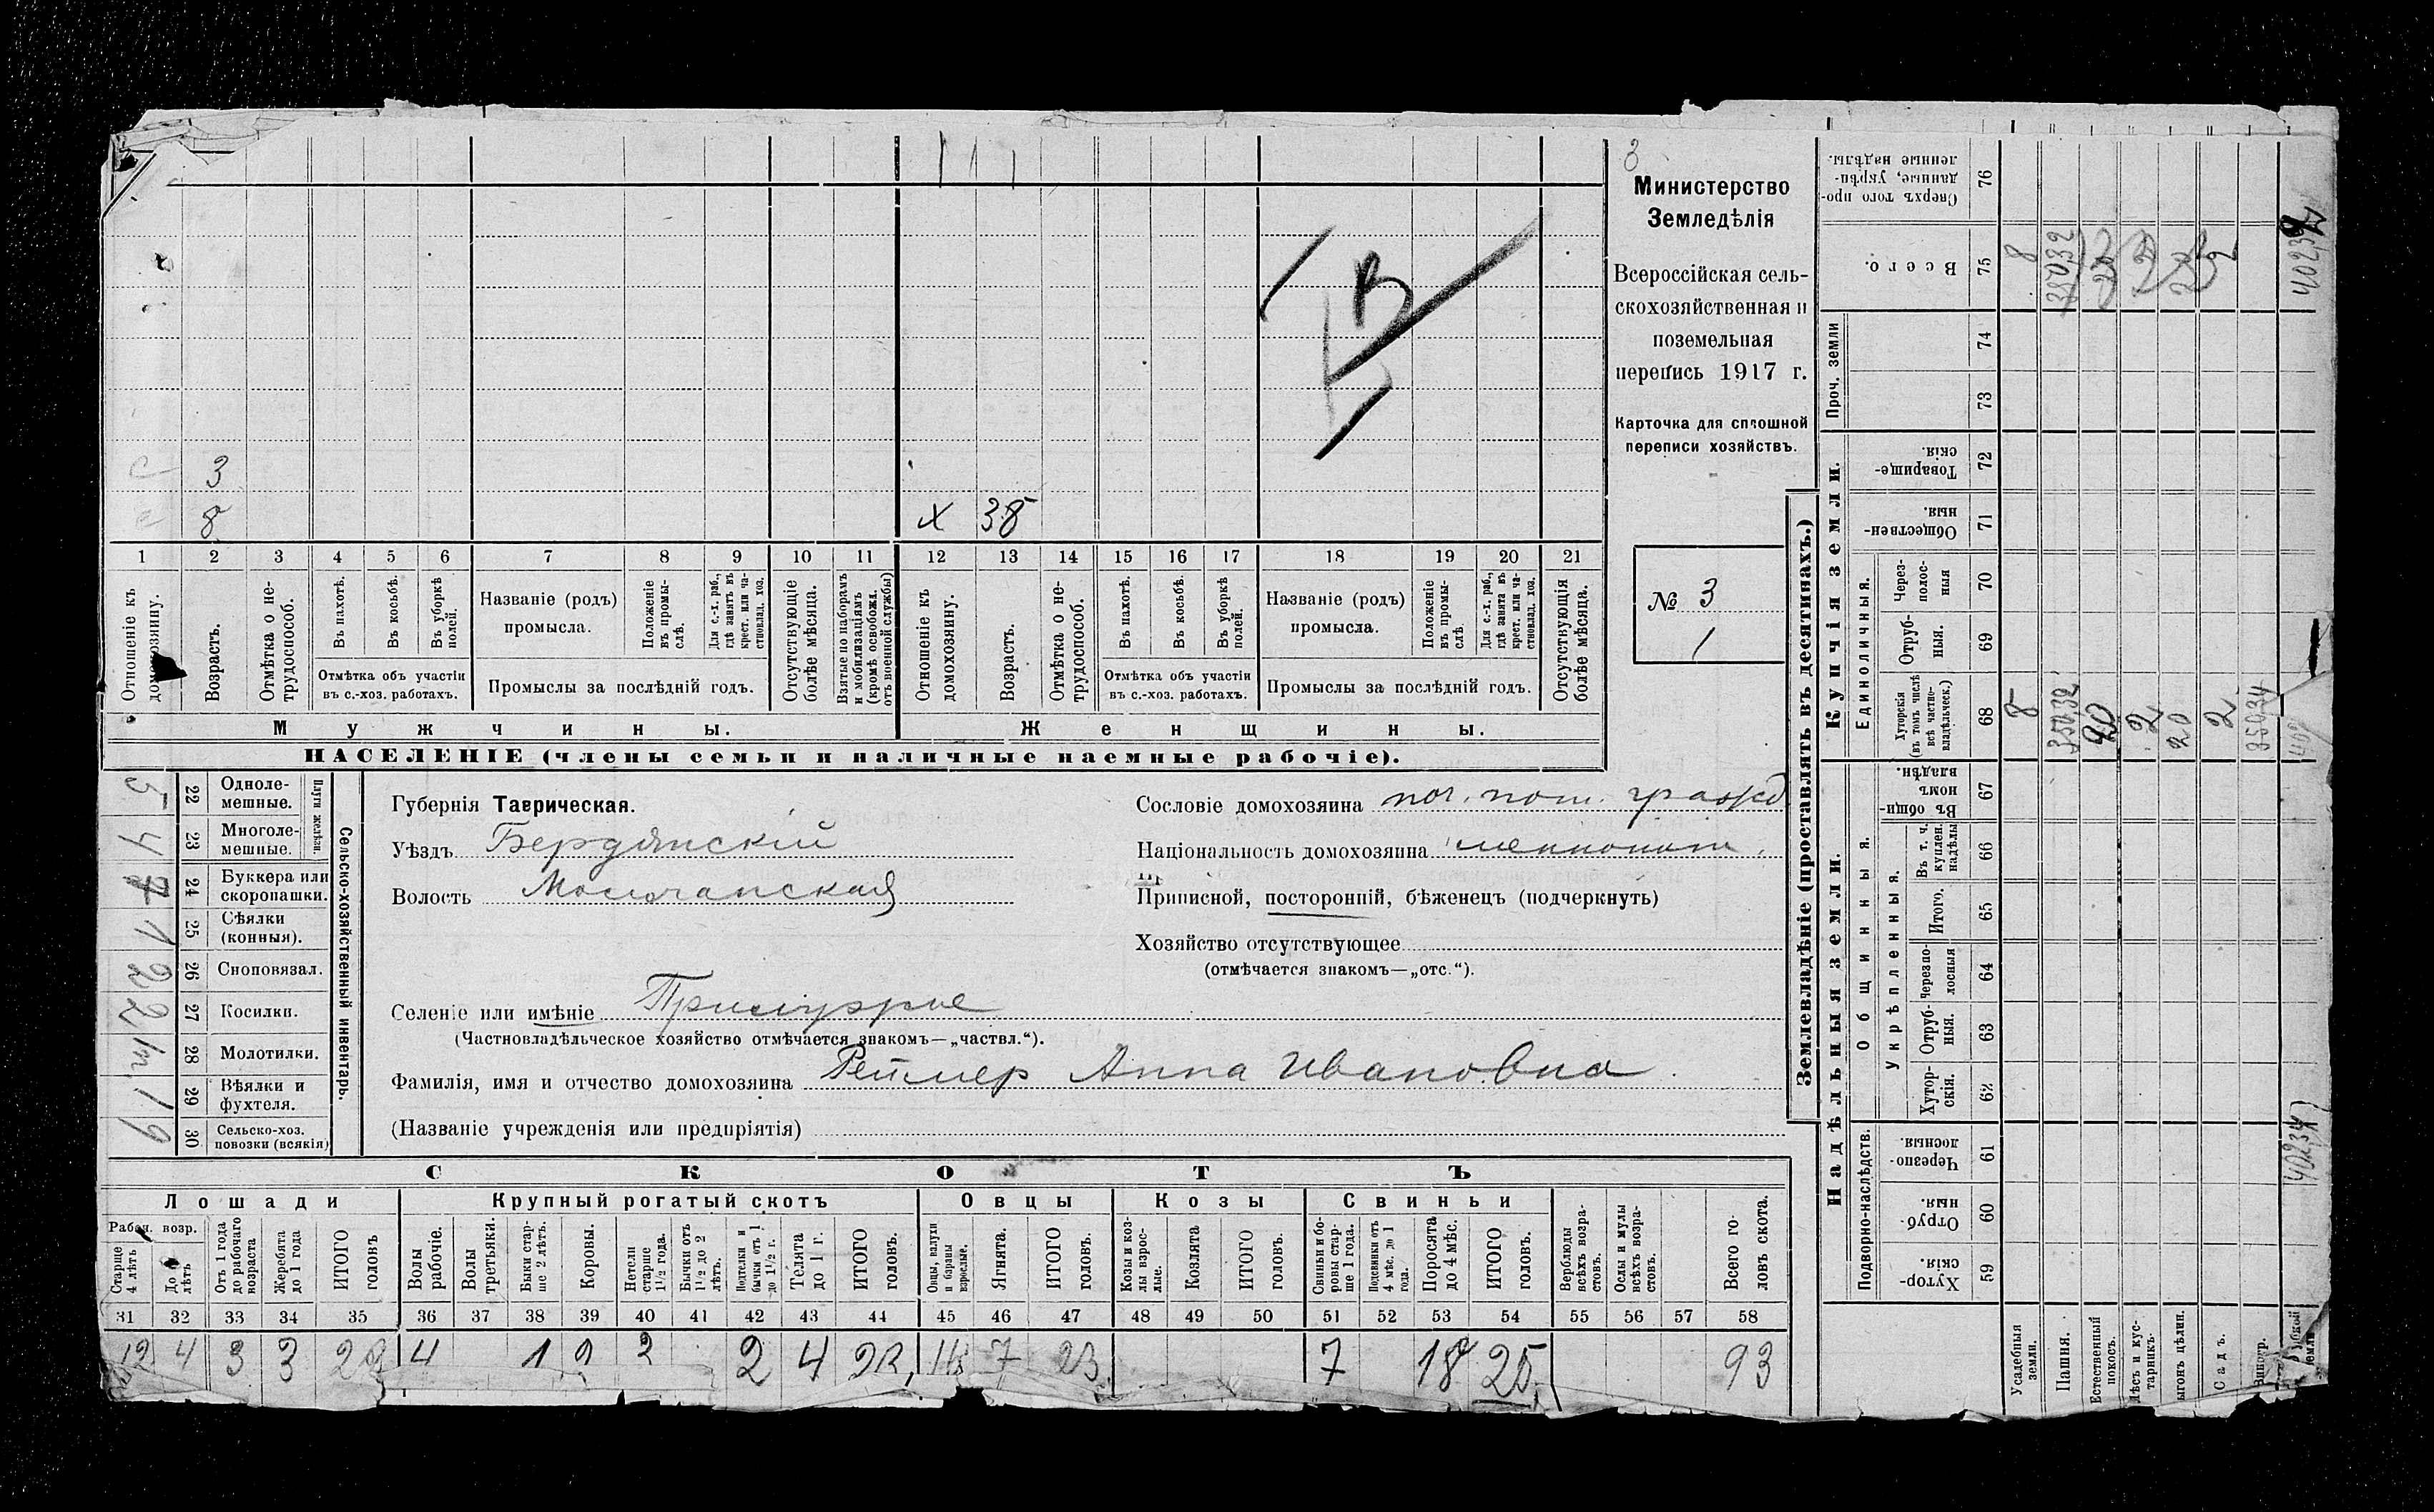 3
Министерство
Земледѣлія
Всероссійская сель-
скохозяйственная и
поземельная
перепись 1917 г.
Карточка для сплошной
переписи хозяйствъ.
№ 3
1
3
8
х 38
1 2 3 4 5 6 7 8 9 10 11 12 13 14 15 16 17 18 19 20 21
Отношеніе къ домохозяину.
Возрастъ.
Отмѣтка о не-трудоспособ.
Въ пахотѣ.
Въ косьбѣ.
Въ уборкѣ полей.
Отмѣтка объ участіи
въ с.-хоз. работахъ.
Названіе (родъ)
промысла.
Положеніе въ промы-слѣ.
Для с.-х. раб., гдѣ занятъ въ крест. или ча-стновлад. хоз.
Промыслы за послѣдній годъ.
Отсутствующіе болѣе мѣсяца.
Взятые по наборамъ и мобилизаціямъ (кромѣ освобожд. отъ военной службы)
Отношеніе къ домохозяину.
Возрастъ.
Отмѣтка о не-трудоспособ.
Въ пахотѣ.
Въ косьбѣ.
Въ уборкѣ полей.
Отмѣтка объ участіи
въ с.-хоз. работахъ.
Названіе (родъ)
промысла.
Положеніе въ промы-слѣ.
Для с.-х. раб., гдѣ занята въ крест. или ча-стновлад. хоз.
Промыслы за послѣдній годъ.
Отсутствующія болѣе мѣсяца.
Мужчины.
Женщины.
НАСЕЛЕНІЕ (члены семьи и наличные наемные рабочіе).
Сельско-хозяйственный инвентарь.
Плуги желѣзн.
22 Одноле-мешные. 5
23 Многоле-мешные. 4
24 Буккера или скоропашки.
25 Сѣялки (конныя). 1
26 Сноповязал. 2
27 Косилки. 2
28 Молотилки.
29 Вѣялки и фухтеля. 1
30 Сельско-хоз. повозки (всякія) 9
Губернія Таврическая.
Уѣздъ Бердянскій
Волость Молочанская
Селеніе или имѣніе
(Частновладѣльческое хозяйство отмѣчается знакомъ—„частвл.“).
Фамилія, имя и отчество домохозяина Реймер Анна Ивановна
(Названіе учрежденія или предпріятія)
Сословіе домохозяина поч. пот. гражд
Національность домохозяина меннонит
Приписной, посторонній, бѣженецъ (подчеркнуть)
Хозяйство отсутствующее
(отмѣчается знакомъ—„отс.“).
СКОТЪ
Лошади
Крупный рогатый скотъ
Овцы
Козы
Свиньи
Рабоч. возр.
Старше 4 лѣтъ
До 4 лѣтъ
Отъ 1 года до рабочаго возраста
Жеребята до 1 года
ИТОГО головъ
Волы рабочіе.
Волы третьяки.
Быки стар-ше 2 лѣтъ.
Коровы.
Нетели старше 1½ года.
Бычки отъ 1½ до 2 лѣтъ.
Нетелки и бычки отъ 1 до 1½ г.
Телята до 1 г.
ИТОГО головъ.
Овцы, валухи и бараны взрослые.
Ягнята.
ИТОГО головъ.
Козы и коз-лы взрос-лые.
Козлята
ИТОГО головъ.
Свиньи и бо-ровы стар-ше 1 года.
Подсвинки отъ 4 мѣс. до 1 года.
Поросята до 4 мѣс.
ИТОГО головъ.
Верблюды всѣхъ возра-стовъ.
Ослы и мулы всѣхъ возра-стовъ.
Всего го-ловъ скота.
31 32 33 34 35 36 37 38 39 40 41 42 43 44 45 46 47 48 49 50 51 52 53 54 55 56 57 58
12 4 3 3 4 1 2 4 7 23 7 18 25 93
Землевладѣніе (проставлять въ десятинахъ.)
Надѣльныя земли.
Купчія земли.
Проч. земли
Подворно-наслѣдств.
Общинныя.
Укрѣпленныя.
Единоличныя.
Хутор-скія. 59
Отруб-ныя. 60
Черезпо-лосныя 61
Хутор-скія. 62
Отруб-ныя. 63
Черезпо-лосныя 64
Итого. 65
Въ т. ч. куплен. надѣлы 66
Въ общин-номъ владѣн. 67
Хуторскія (въ томъ числѣ всѣ частно-владѣльческ.) 68
Отруб-ныя. 69
Через-полос-ныя 70
Обществен-ныя. 71
Товарище-скія. 72
73
74
Всего. 75
Сверхъ того про-данные, укрѣп-ленные надѣлы. 76
Усадебная земли. 8 8
Пашня. 350,32 350,32
Естественный покосъ.
Лѣсъ и кус-тарникъ. 2
Выгонъ цѣлин. 20
Садъ. 2 2
Виногр.